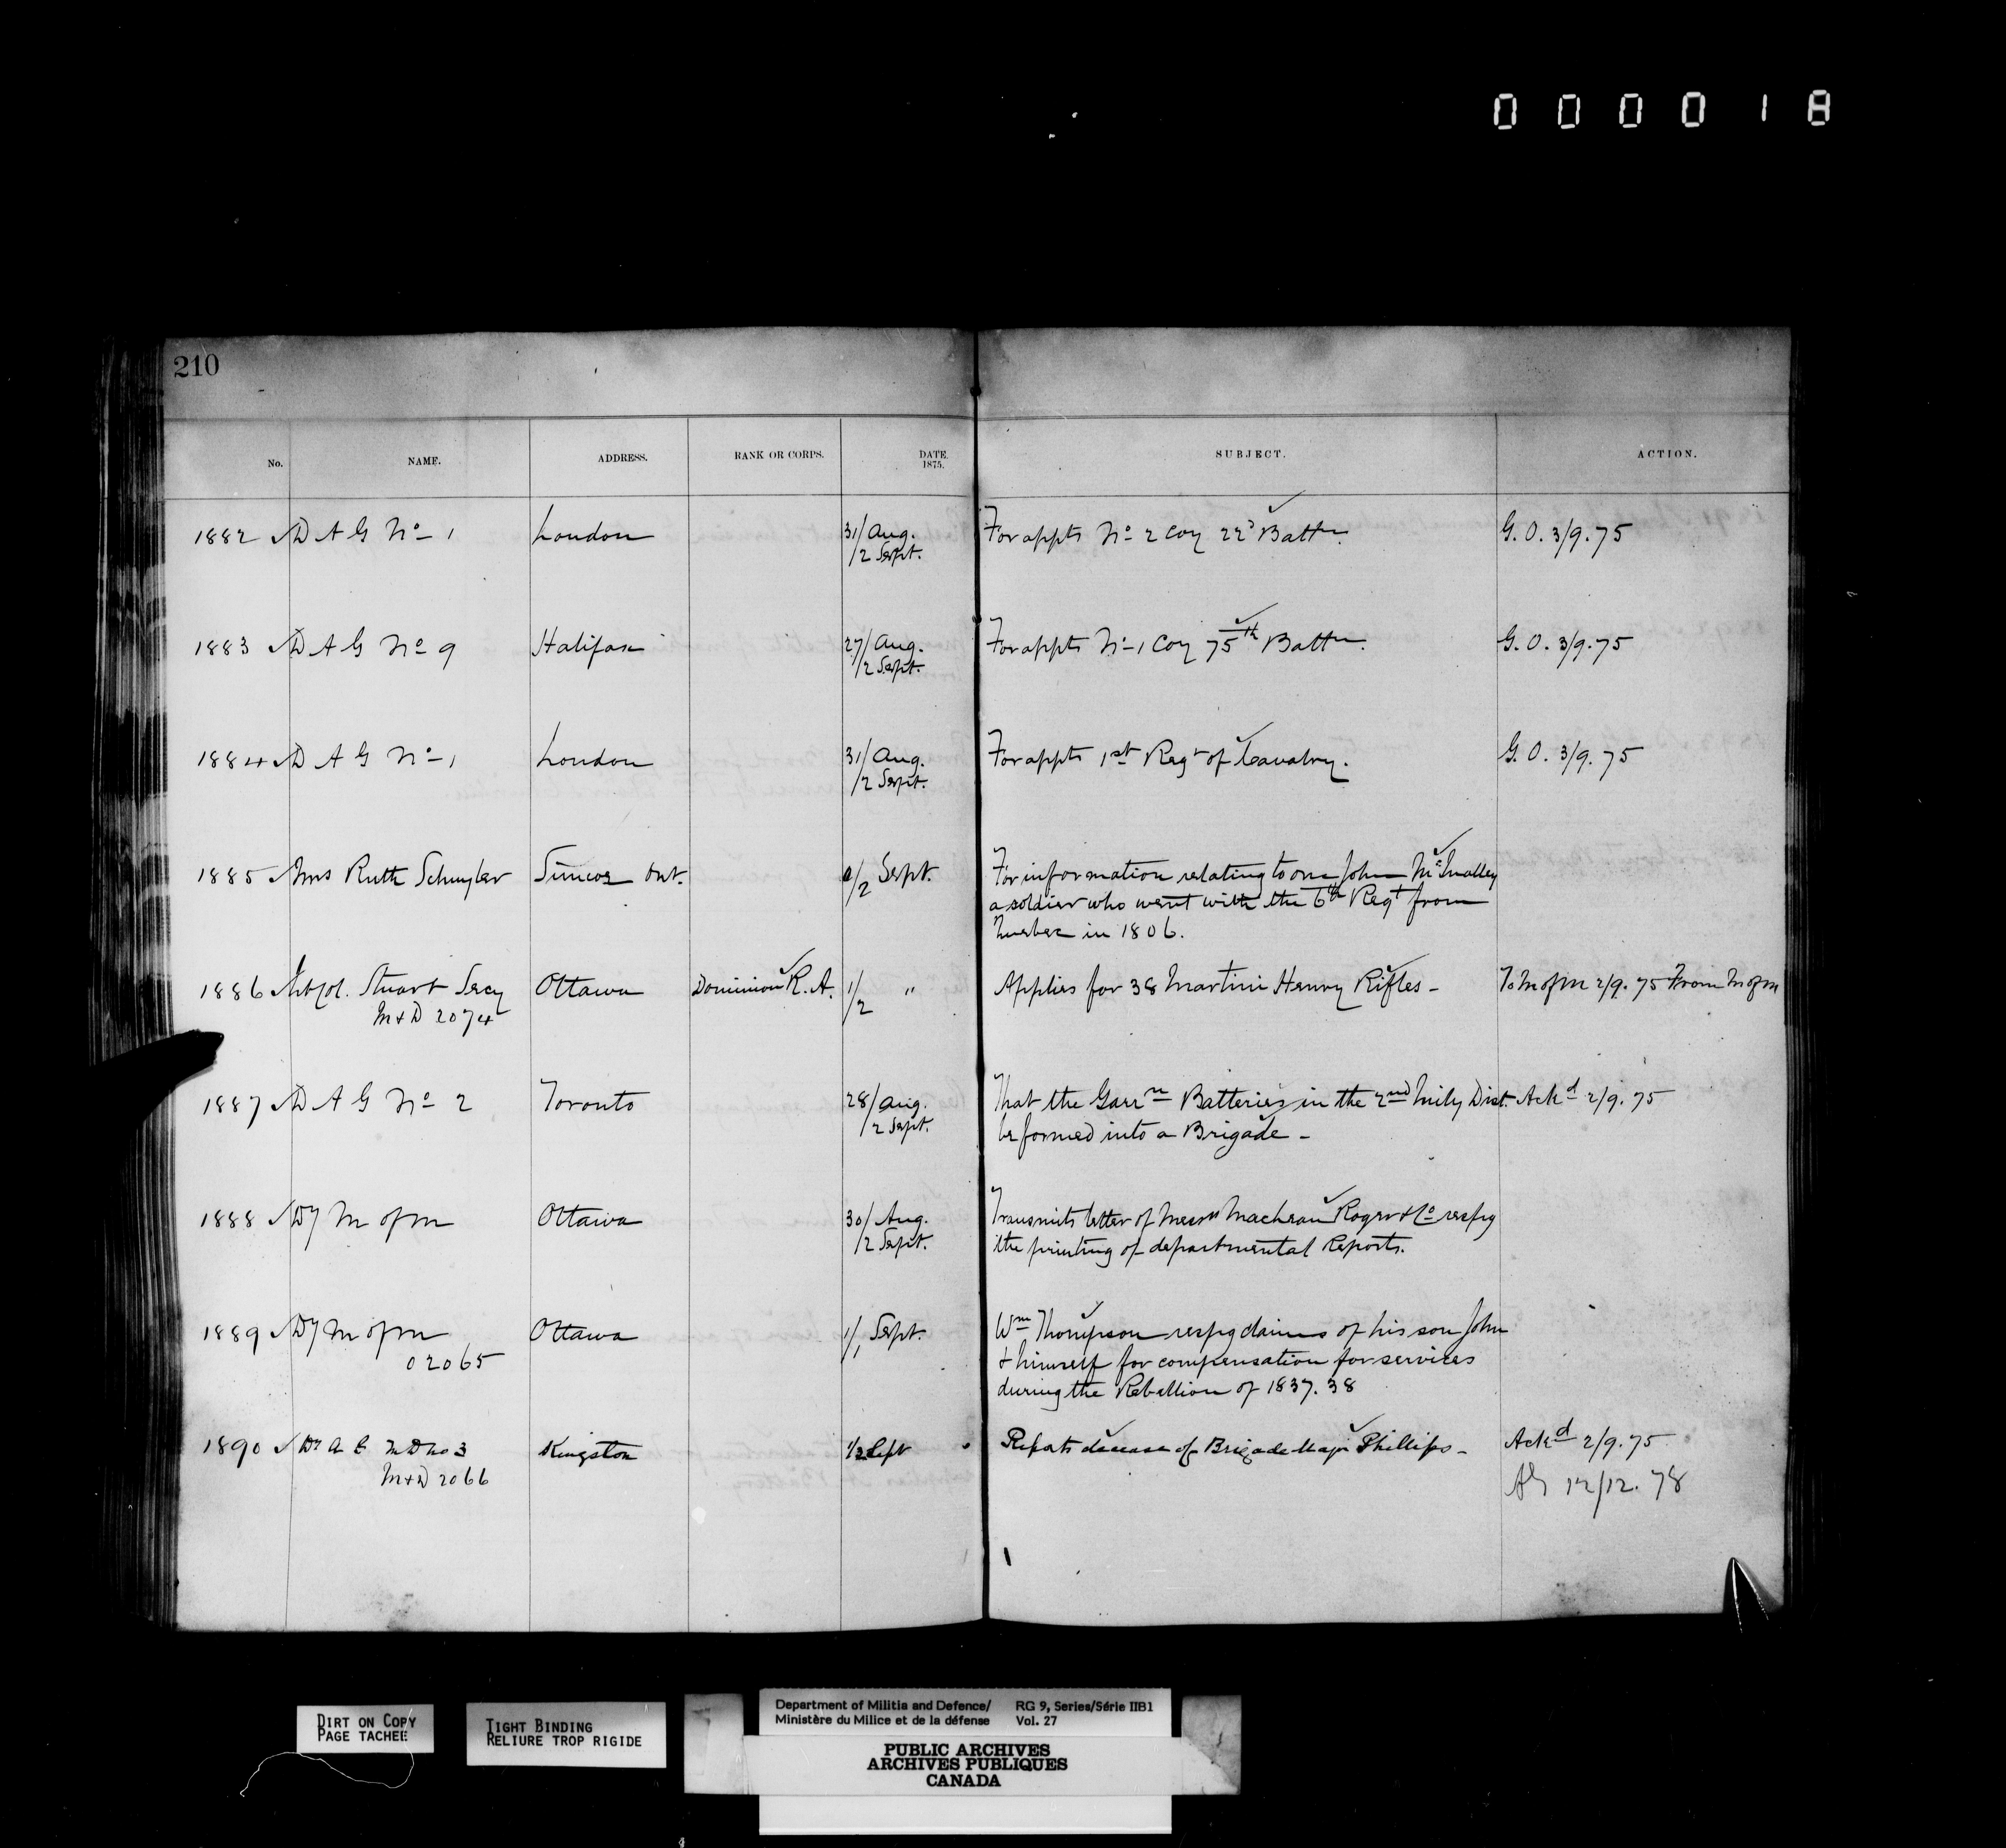 000018
210
No. NAME. ADDRESS. RANK OR CORPS. DATE. 1875. SUBJECT. ACTION.
1882 D A G No 1 London 31/Aug. /2 Sept. For appts No 2 Coy 22d Battn. G. O. 3/9.75
1883 D A G No 9 Halifax 27/Aug. /2 Sept. For appts No 1 Coy 75th Battn. G. O. 3/9.75
1884 D A G No 1 London 31/Aug. /2 Sept. For appts 1st Regt of Cavalry. G. O. 3/9.75
1885 Mrs Ruth Schuyler Simcoe Ont. /2 Sept. For information relating to one John
a soldier who went with the 6th Regt from
Quebec in 1806.
1886 Lt Col. Stuart Ottawa Dominion R. A. 1/2 " Applies for 38 Martini Henry Rifles - To M of M 2/9.75 From M of M
M & D 2074
1887 D A G No 2 Toronto 28/Aug. /2 Sept. That the Garrn Batteries in the 2nd Mily Dist. Ackd 2/9.75
be formed into a Brigade -
1888 Dy M of M Ottawa 30/Aug. /2 Sept. Transmits letter of Messrs Maclean Roger & Co respg
the printing of departmental Reports.
1889 Dy M of M Ottawa 1/1 Sept. Wm Thompson respg claims of his son John
02065 & himself for compensation for services
during the Rebellion of 1837.38
1890 M D No 3 Kingston 1/2 Sept Reports decease of Brigade Major Phillips - Ackd 2/9.75
M & D 2066 12/12.78
DIRT ON COPY
PAGE TACHEE
TIGHT BINDING
RELIURE TROP RIGIDE
Department of Militia and Defence/ RG 9, Series/Série IIB1
Ministère du Milice et de la défense Vol. 27
PUBLIC ARCHIVES
ARCHIVES PUBLIQUES
CANADA